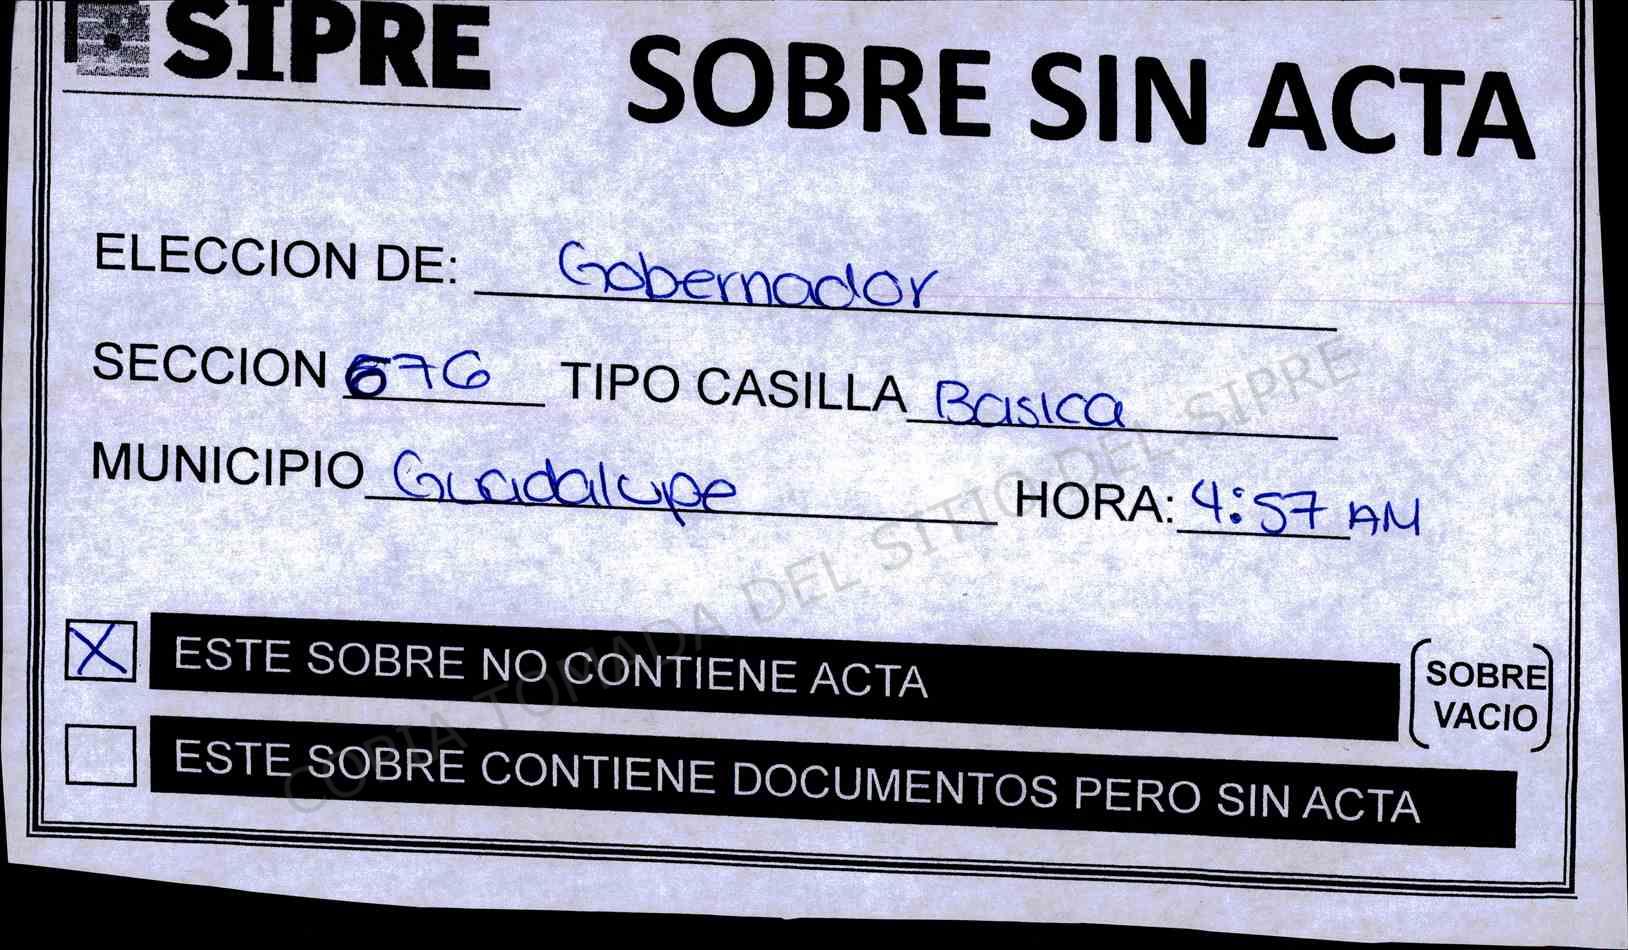 SIPRE
SOBRE SIN ACTA
ELECCION DE: Gobernador
SECCION 676 TIPO CASILLA Basica
MUNICIPIO Guadalupe HORA: 4:57 AM
X ESTE SOBRE NO CONTIENE ACTA (SOBRE VACIO)
ESTE SOBRE CONTIENE DOCUMENTOS PERO SIN ACTA
COPIA TOMADA DEL SITIO DEL SIPRE